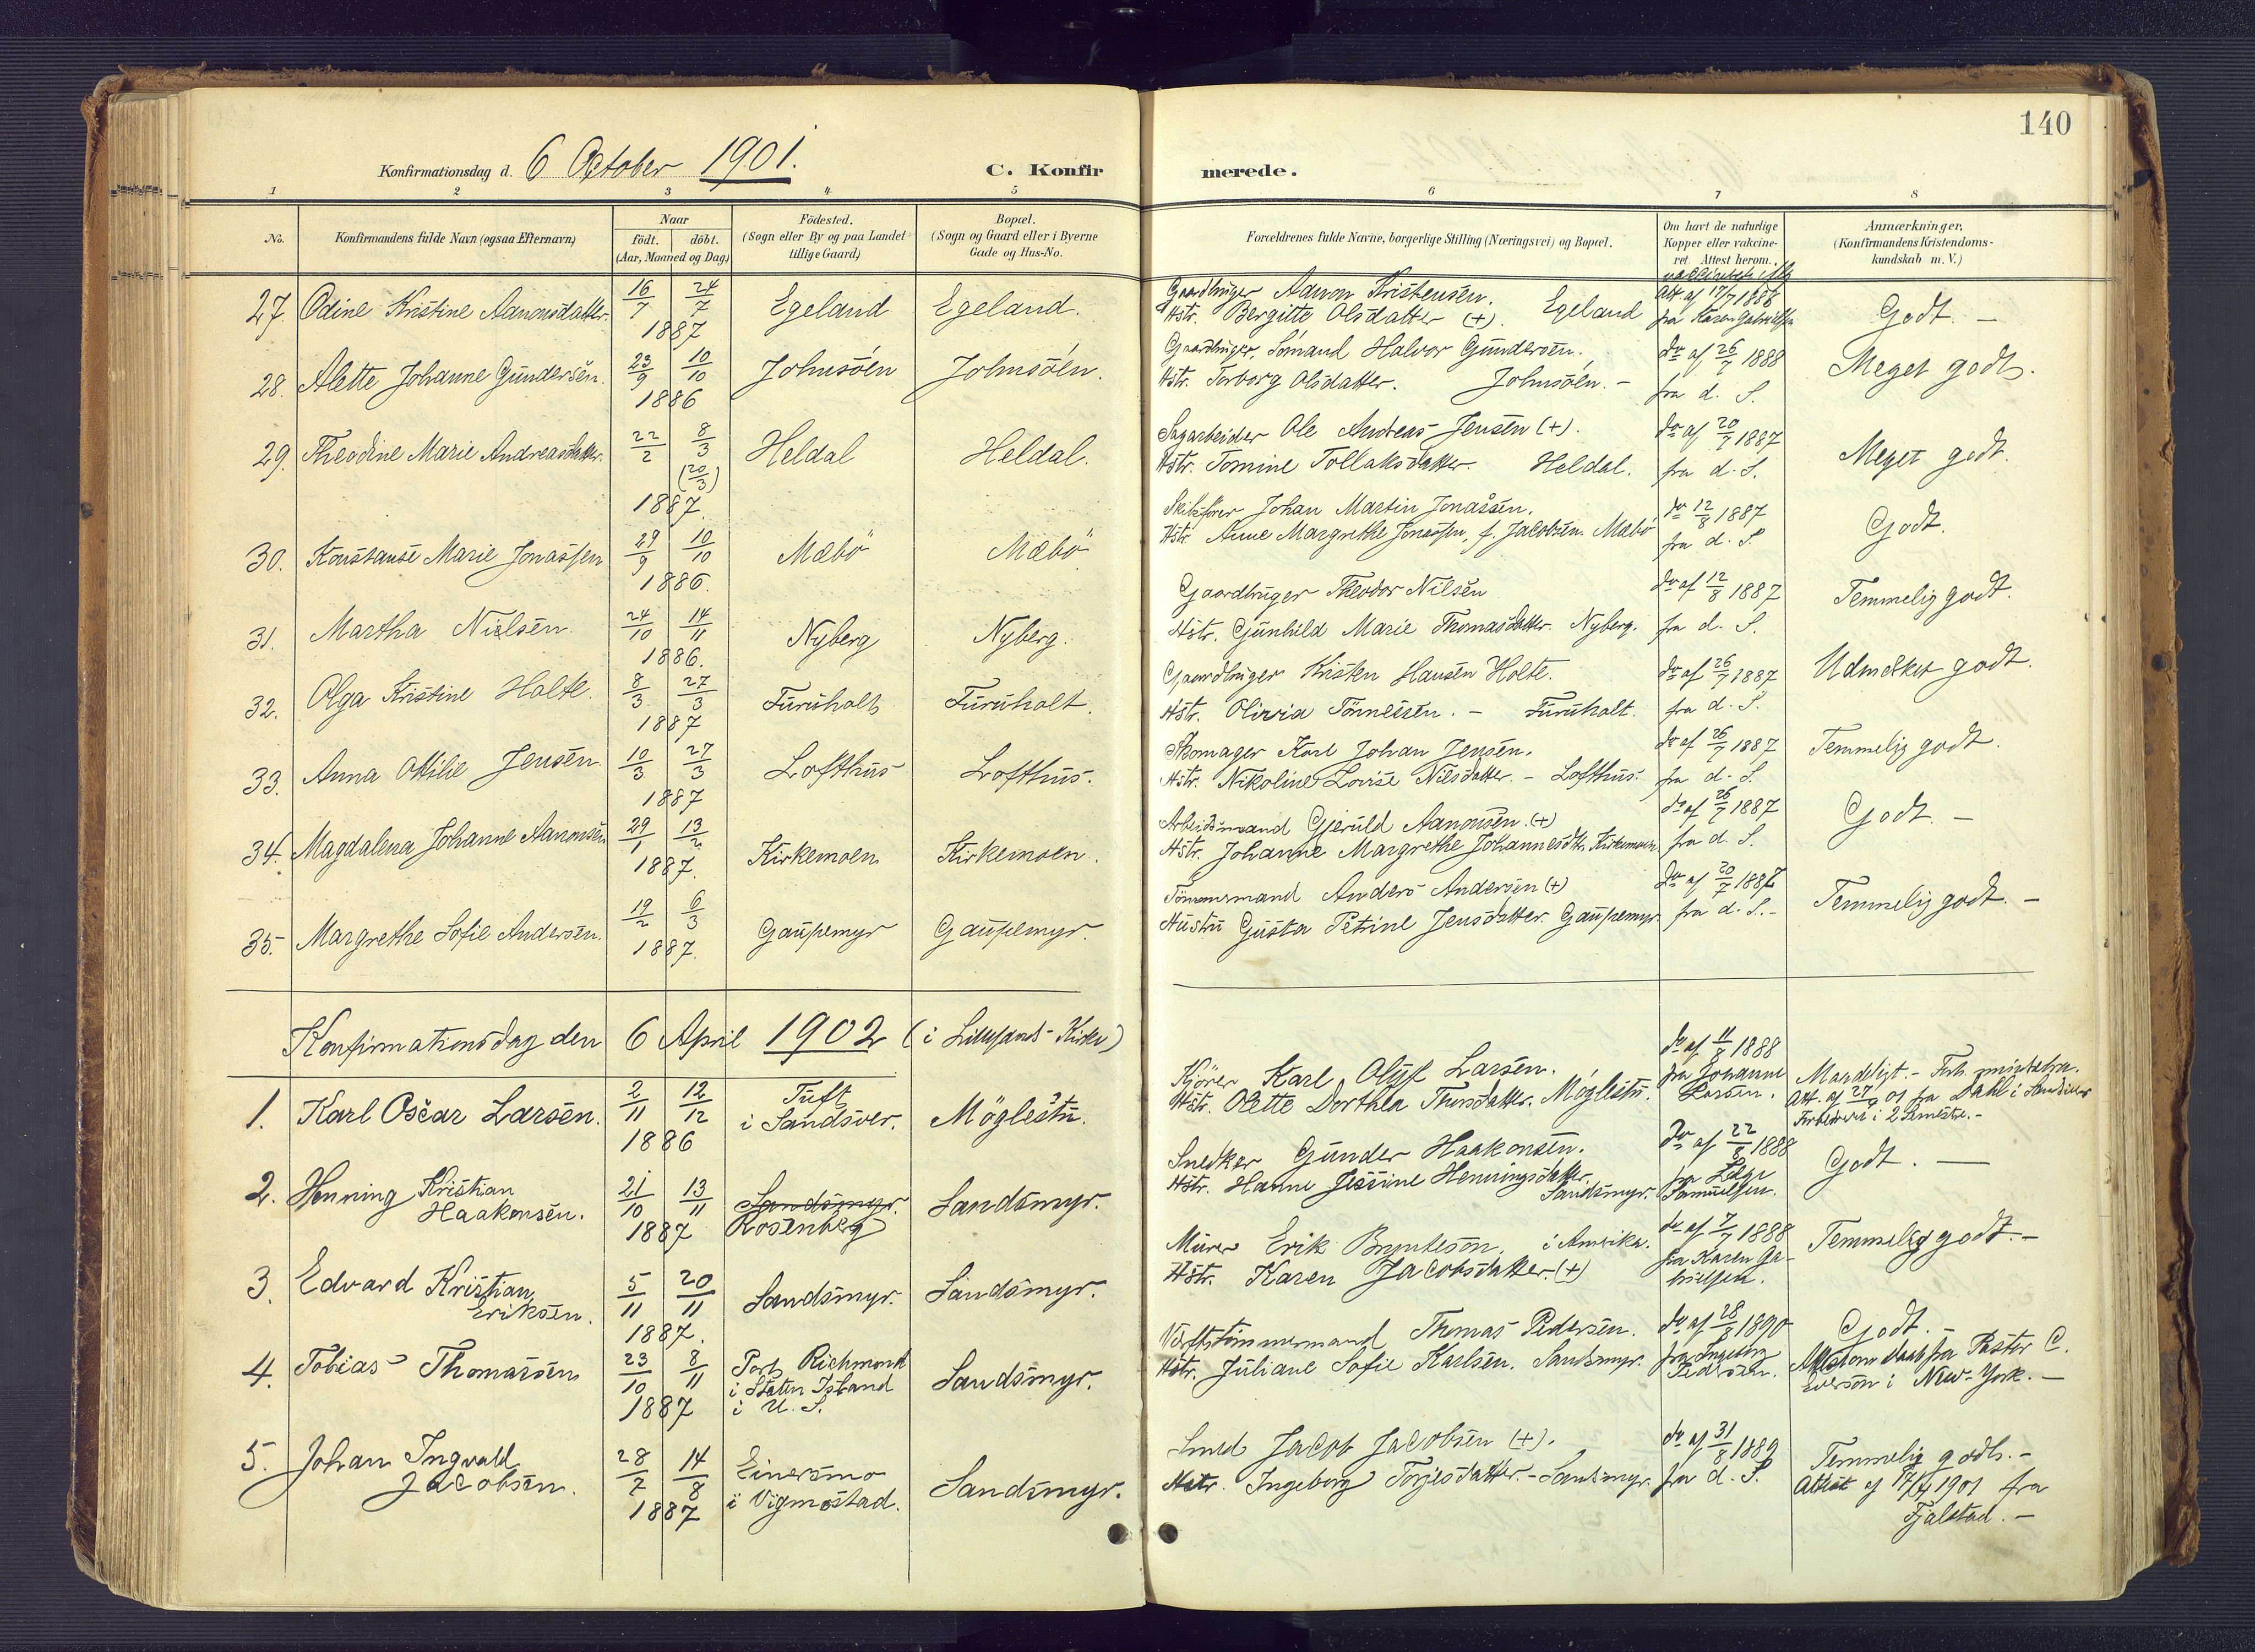 140
Konfirmationsdag d. 6 October 1901.
C. Konfirmerede.
1 2 3 4 5 6 7 8
No.
Konfirmandens fulde Navn (ogsaa Efternavn)
Naar
födt. döbt.
(Aar, Maaned og Dag)
Födested.
(Sogn eller By og paa Landet
tillige Gaard)
Bopæl.
(Sogn og Gaard eller i Byerne
Gade og Hus-No.
Forældrenes fulde Navne, borgerlige Stilling (Næringsvei) og Bopæl.
Om havt de naturlige
Kopper eller vakcine-
ret. Attest herom.
Anmærkninger,
(Konfirmandens Kristendoms-
kundskab m. V.)
27. Odine Kristine Aanonsdatter. 16/7 24/7 1887 Egeland Egeland.
Gaardbruger Aanon Kristensen.
Hstr. Bergitte Olsdatter (+). Egeland
Att. af 17/7 1886
fra Karen Gabrielsen
Godt. —
28. Alette Johanne Gundersen. 23/9 10/10 1886 Johnsöen Johnsöen.
Gaardbruger, Sömand Halvor Gundersen.
Hstr. Torborg Olsdatter. Johnsöen. -
do af 26/7 1888
fra d. S.
Meget godt.
29. Theodine Marie Andreasdatter. 22/2 8/3 (20/3) 1887. Heldal Heldal.
Sagarbeider Ole Andreas Jensen (+).
Hstr. Tomine Tollaksdatter. Heldal.
do af 20/7 1887
fra d. S.
Meget godt.
30. Konstanse Marie Jonassen 29/9 10/10 1886. Mæbö Mæbö.
Skibsförer Johan Martin Jonassen.
Hstr. Anne Margrethe Jonassen, f. Jacobsen. Mæbö
do 12/8 1887
fra d. S
Godt.
31. Martha Nielsen. 24/10 14/11 1886. Nyberg Nyberg.
Gaardbruger Theodor Nilsen
Hstr. Gunhild Marie Thomasdatter. Nyberg.
do af 12/8 1887
fra d. S.
Temmelig godt.
32. Olga Kristine Holte. 8/3 27/3 1887 Furuholt Furuholt.
Gaardbruger Kristen Hansen Holte.
Hstr. Olivia Tönnessen. - Furuholt.
do af 26/7 1887
fra d. S.
Udmerket godt.
33. Anna Ottilie Jensen 10/3 27/3 1887 Lofthus Lofthus.
Skomager Karl Johan Jensen.
Hstr. Nikoline Lovise Nilsdatter. - Lofthus.
do af 26/7 1887
fra d. S.
Temmelig godt.
34. Magdalena Johanne Aanonsen 29/1 13/2 1887. Kirkemoen Kirkemoen.
Arbeidsmand Gjeruld Aanonsen. (+)
Hstr. Johanne Margrethe Johannesdtr. Kirkemoen
do af 26/7 1887
fra d. S.
Godt. —
35. Margrethe Sofie Andersen. 19/2 6/3 1887. Gaupemyr Gaupemyr.
Tömmermand Anders Andersen (+)
Hustru Gusta Petrine Jensdatter. Gaupemyr.
do af 20/7 1887
fra d. S. -
Temmelig godt. —
Konfirmationsdag den 6 April 1902 (i Lillesands Kirke)
1. Karl Oscar Larsen. 2/11 12/12 1886 Tuft
i Sandsver. Möglestu.
Kjörer Karl Oluf Larsen.
Hstr. Olette Dorthea Thorsdatter. Möglestu.
do af 11/8 1888
fra Johanne
Larsen.
Maadeligt -
Att. af 27/9 01 fra Dahl i Sandsver
2. Henning Kristian
Haakonsen. 21/10 13/11 1887 Sandsmyr.
Rosenberg Sandsmyr.
Snedker Gunder Haakonsen.
Hstr. Hanne Jessine Henningsdatter.
Sandsmyr.
do af 22/8 1888
Samuelsen.
Godt. —
3. Edvard Kristian
Eriksen. 5/11 20/11 1887. Sandsmyr. Sandsmyr.
Murer Erik Bryntesön. i Amerika.
Hstr. Karen Jacobsdatter. (+)
do af 7/7 1888
fra Karen Ga-
brielsen.
Temmelig godt. —
4. Tobias Thomassen 23/10 8/11 1887 Port Richmond
i Staten Island
i U. S. Sandsmyr.
Verftstömmermand Thomas Pedersen.
Hstr. Juliane Sofie Karlsen. Sandsmyr.
do af 28/8 1890
fra Ingeborg
Pedersen.
Godt. -
Attest om Daab fra Pastor C.
Everson i New-York. —
5. Johan Ingvald
Jacobsen. 28/7 14/8 1887 Einersmo
i Vigmostad. Sandsmyr.
Smed Jacob Jacobsen (+).
Hstr. Ingeborg Torjesdatter. - Sandsmyr.
do af 31/8 1889
fra d. S.
Temmelig godt. -
Attest af 17/4 1901 fra
Fjalstad. —